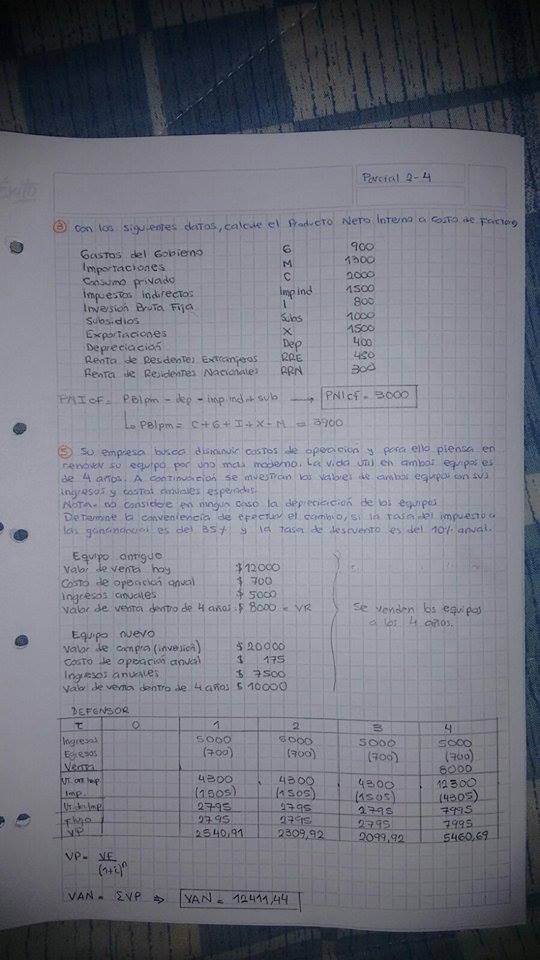 Éxito
Parcial 2-4
③ Con los siguientes datos, calcule el Producto Neto Interno a costo de factores
Gastos del Gobierno G 900
Importaciones M 1300
Consumo privado C 2000
Impuestos indirectos Imp.ind 1500
Inversión Bruta Fija I 800
Subsidios Subs 1000
Exportaciones X 1500
Depreciación Dep 400
Renta de Residentes Extranjeros RRE 450
Renta de Residentes Nacionales RRN 300
PNIcf = PBIpm - dep - imp.ind + sub → PNIcf = 3000
↳ PBIpm = C+G+I+X-M = 3900
⑤ Su empresa busca disminuir costos de operación y para ello piensa en
renovar su equipo por uno más moderno. La vida útil en ambos equipos es
de 4 años. A continuación se muestran los valores de ambos equipos con sus
ingresos y costos anuales esperados:
NOTA- no considere en ningún caso la depreciación de los equipos
Determine la conveniencia de efectuar el cambio, si la tasa del impuesto a
las ganancias es del 35% y la tasa de descuento es del 10% anual.
Equipo antiguo
Valor de venta hoy $ 12000
Costo de operación anual $ 700
Ingresos anuales $ 5000
Valor de venta dentro de 4 años $ 8000 = VR
Se venden los equipos
a los 4 años.
Equipo nuevo
Valor de compra (inversión) $ 20000
Costo de operación anual $ 175
Ingresos anuales $ 7500
Valor de venta dentro de 4 años $ 10000
DEFENSOR
t 0 1 2 3 4
Ingresos 5000 5000 5000 5000
Egresos (700) (700) (700) (700)
Venta 8000
Ut. ant. Imp. 4300 4300 4300 12300
Imp. (1505) (1505) (1505) (4305)
Ut. des. Imp. 2795 2795 2795 7995
Flujo 2795 2795 2795 7995
VP 2540,91 2309,92 2099,92 5460,69
VP = VF/(1+i)^n
VAN = ΣVP ⇒ VAN = 12411,44